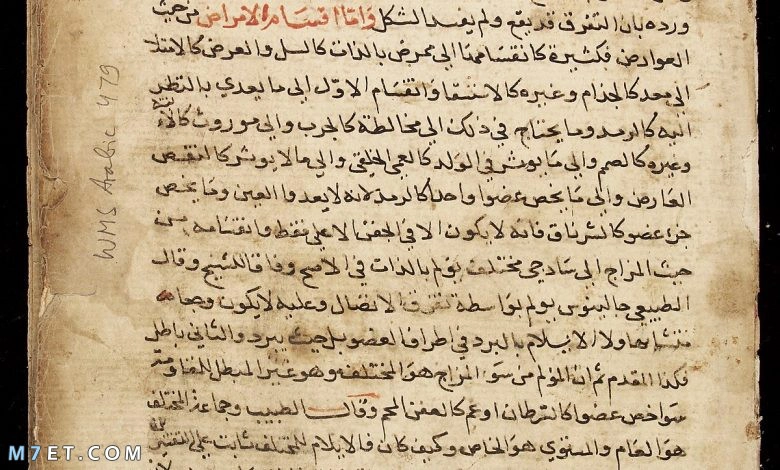 ورده بان التفرق قد يقع ولم يفسد الشكل واما اقسام الامراض من حيث
العوارض فكثيرة كانقسامها الى ممرض بالذات كالسل والعرض كالامتلا
الى معد كالجذام وغيره كالاستسقا وانقسام الاول الى ما يعدي بالنظر
اليه كالرمد وما يحتاج في ذلك الى مخالطة كالجرب والى موروث
وغيره كالصمم والى ما يوثر في الولد كالعمى الخلقي والى ما لا يوثر كالنقص
العارض والى ما يخص عضوا واحدا كالرمد لانه لا يعدوا العين وما يخص
جزء عضو كالشرناق فانه لا يكون الا في الجفن الاعلى فقط وانقسامه من
حيث المزاج الى ساذجي مختلف يولم بالذات في الاصح وفاقا للشيخ وقال
الطبيعي جالينوس يولم بواسطة تفرق الاتصال وعليه لا يكون
متشابها ولا الايلام بالبرد في اطراف العضو بل حيث يبرد والثاني باطل
فكذا المقدم ثم ان المولم من سو المزاج هو المختلف وهو غير المبطل للمقاومة
سوا خص عضوا كالسرطان او عم كالعفن الحمى وقال الطبيب وجماعة المختلف
هو العام والمستوي هو الخاص وكيف كان فالايلام للمختلف ثابت على
WMS Arabic 479
M7ET.COM